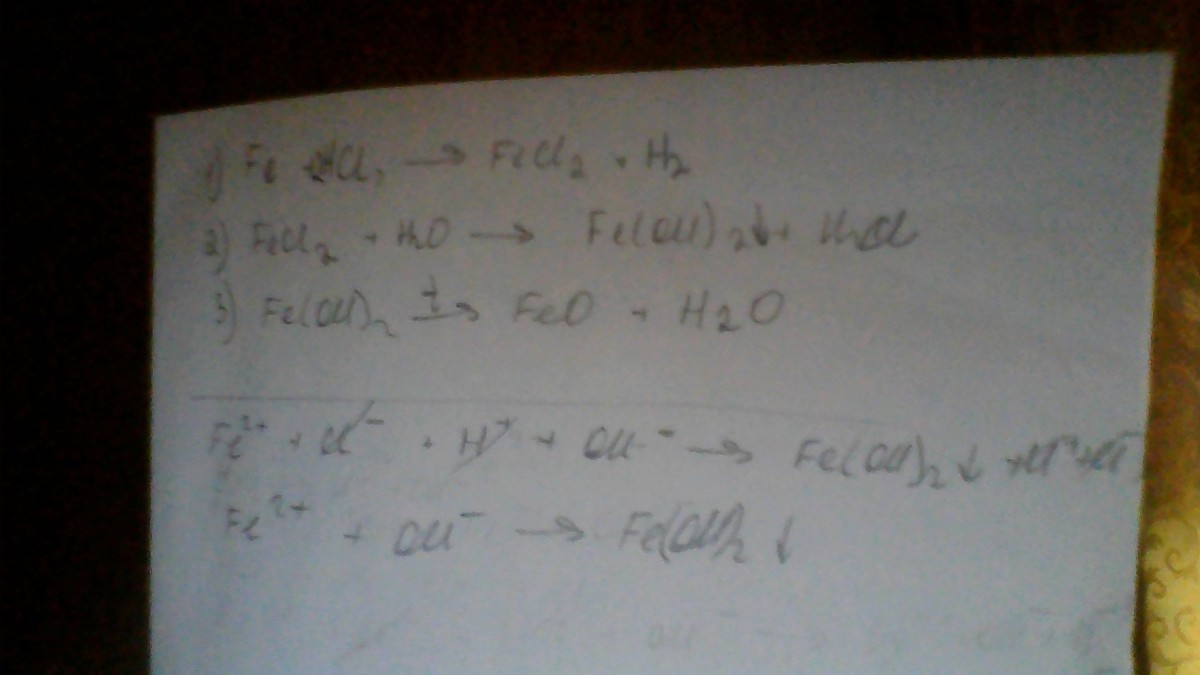 1) Fe + HCl → FeCl₂ + H₂
2) FeCl₂ + H₂O → Fe(OH)₂↓ + HCl
3) Fe(OH)₂ t→ FeO + H₂O
Fe²⁺ + Cl⁻ + H⁺ + OH⁻ → Fe(OH)₂↓ + H⁺ + Cl⁻
Fe²⁺ + OH⁻ → Fe(OH)₂↓